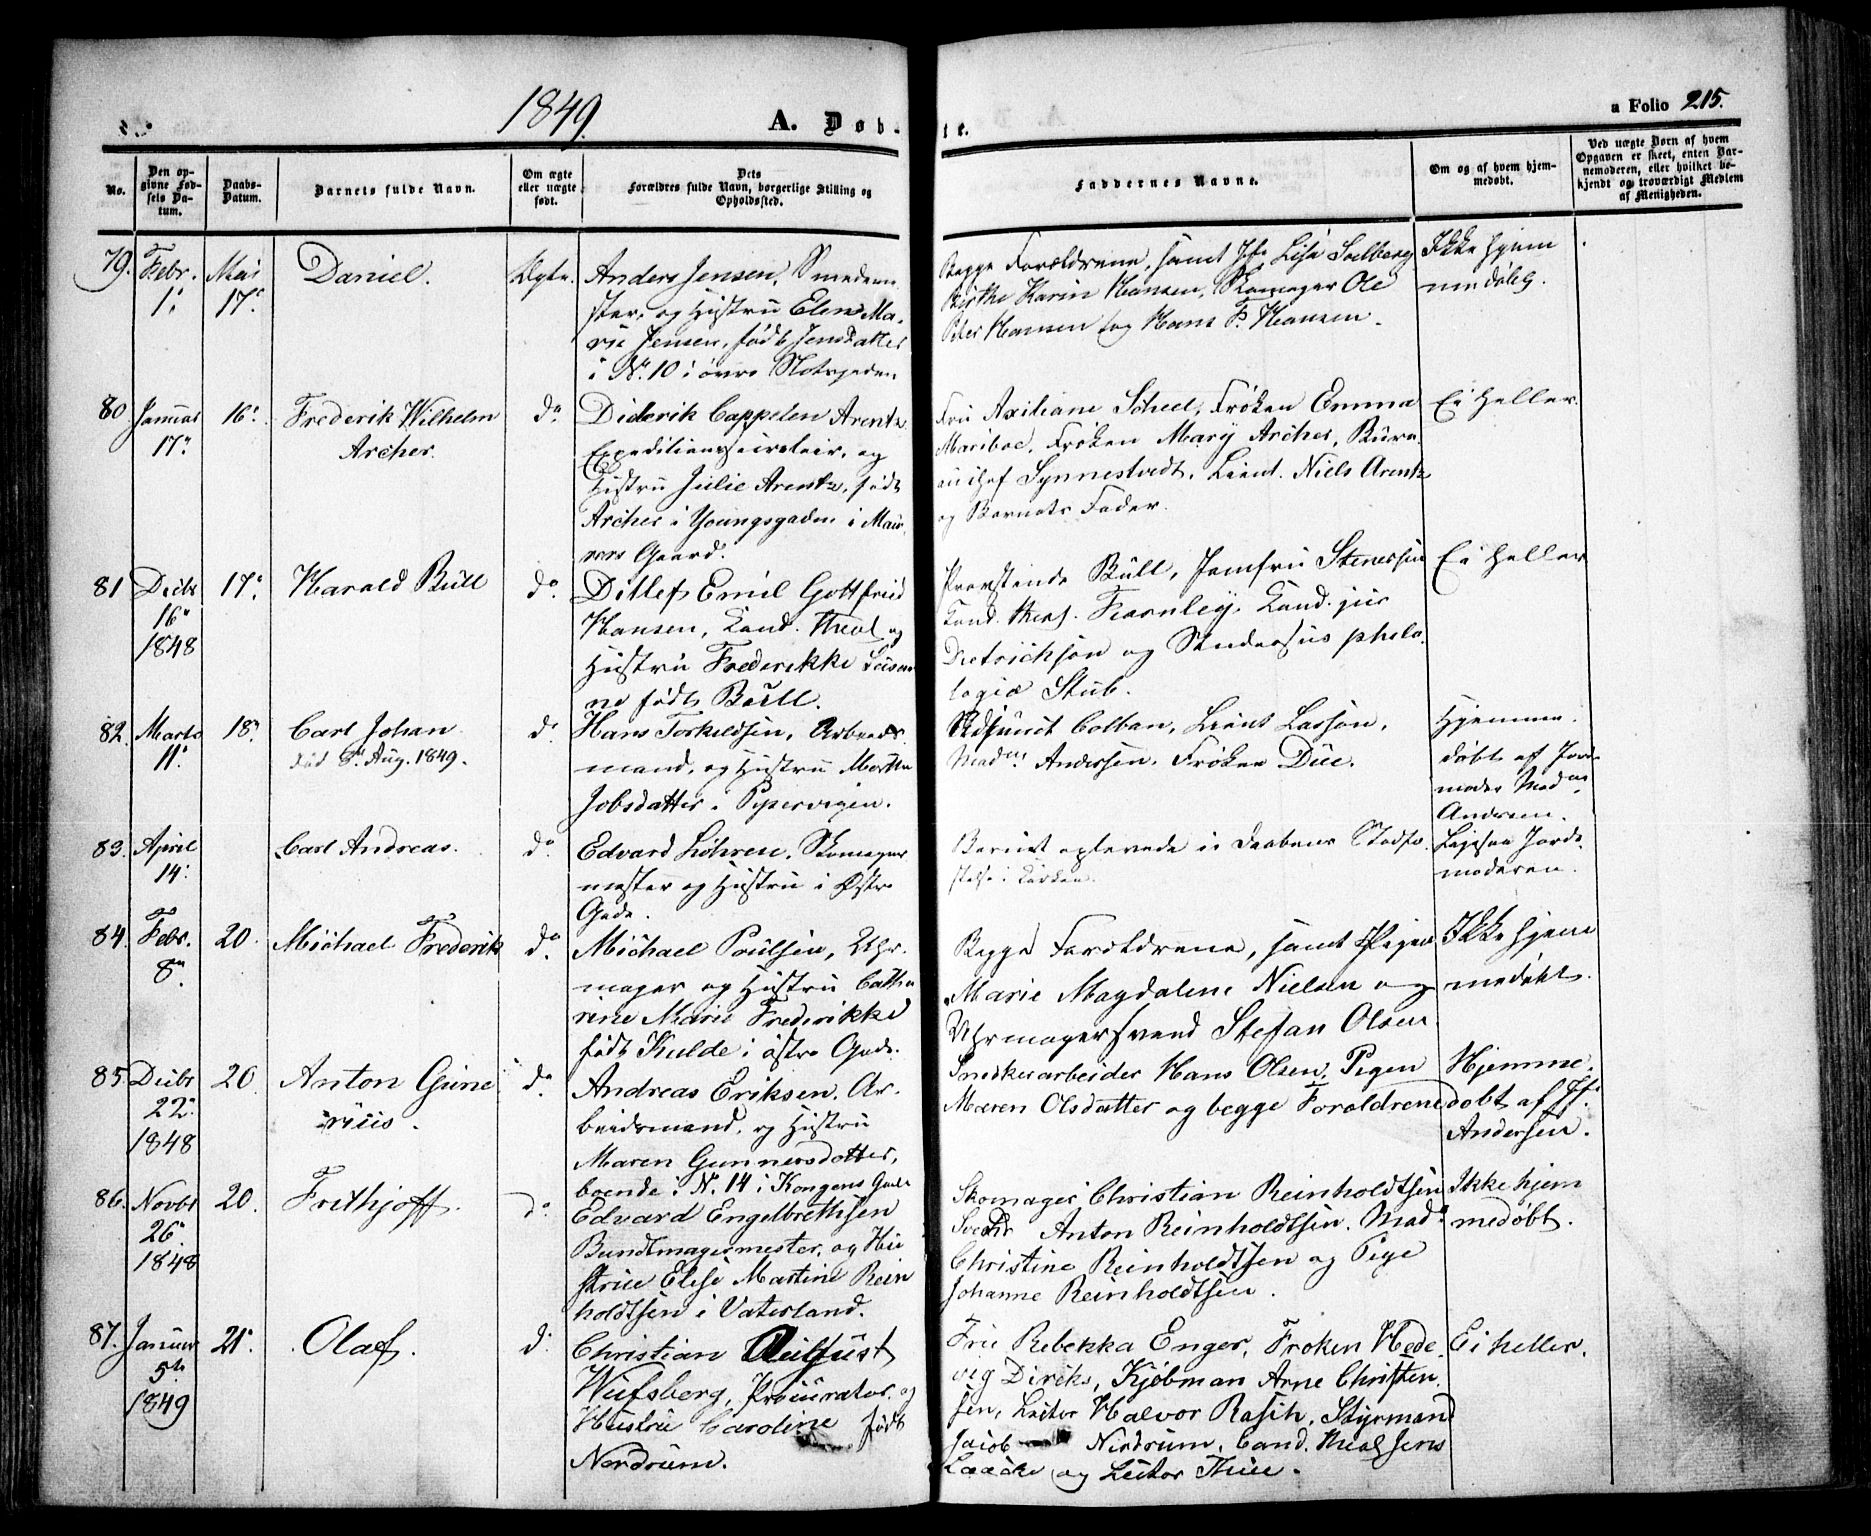 1849.
A. Døb-
te.
a Folio 215.
No.
Den op-
givne Fød-
sels Da-
tum.
Daabs-
Datum.
Barnets fulde Navn.
Om ægte
eller uægte
født.
Dets
Forældres fulde Navn, borgerlige Stilling og
Opholdssted.
Faddernes Navne.
Om og af hvem hjem-
medøbt.
Ved uægte Børn af hvem
Opgaven er skeet, enten Bar-
nemoderen, eller hvilket be-
kjendt og troværdigt Medlem
af Menigheden.
79. Febr. 1. Mai 17. Daniel. Ægte.
Anders Jensen, Smedem
ster, og Hustru Elen Ma-
rie Jensen, født Jensdatter
i N. 10 i øvre Slotsgaden
Begge Forældrene, samt Jfr Lise Solberg
Birthe Karin Hansen, Skomager Ole
Peter Hansen og Hans P. Hansen.
Ikke hjem
medøbt.
80 Januar 17. 16. Frederik Wilhelm
Archer. do
Diderik Cappelen Arentz
Expeditionssecretair, og
Hustru Julie Arentz, født
Archer i Youngsgaden i Mau-
rers Gaard.
Fru Axiliane Scheel, Frøken Emma
Mariboe, Frøken Mary Archer, Bure-
auchef Synnestvedt, Lieut. Niels Arentz
og Barnets Fader.
Ei heller.
81 Decbr 16 1848 17. Harald Bull do.
Ditlef Emil Gottfried
Hansen, Cand. theol og
Hustru Frederikke Susan
ne født Bull.
Provstinde Bull, Jomfru Stenersen
Cand. theol. Fearnley, Cand. jur
Dietrichson og Studiosus philo-
logiæ Stub.
Ei heller
82. Marts 11. 18. Carl Johan
død Aug. 1849. do
Hans Torkeldsen, Arbeids-
mand, og Hustru Marthe
Jobsdatter. Pipervigen.
Adjunct Colban, Lieut Lasson,
Madm. Andersen, Frøken Due.
Hjemme-
døbt af Jorde
moder Madm
Andersen.
83. April 14. Carl Andreas. do
Edvard Löhren, Skomager
mester og Hustru i Østre
Gade.
Barnet oplevede ei Daabens Stadfæ-
stelse i Kirken.
Jorde-
moderen.
84. Febr. 8 20. Michael Frederik do.
Michael Poulsen, Uhr-
mager og Hustru Catha
rine Marie Frederikke
født Kulde i østre Gade.
Begge Forældrene, samt Pigen
Marie Magdalene Nielsen og
Uhrmagersvend Stefan Olsen.
Ikke hjem
medøbt
85. Decbr 22. 1848 20 Anton Gune
rius. do
Andreas Eriksen, Ar-
beidsmand, og Hustru
Maren Gunnersdatter,
boende i N. 14 i Kongens Gade
Snedkerarbeider Hans Olsen, Pigen
Maren Olsdatter og begge Forældrene
Hjemme-
døbt af Jf.
Andersen.
86. Novbr 26. 1848 20. Frithjoff. do
Edvard Engelbrethsen
Bundtmagermester, og Hu
strue Elise Martine Rein
holdtsen i Vaterland.
Skomager Christian Reinholdtsen
Svend Anton Reinholdtsen. Madm
Christine Reinholdtsen og Pige
Johanne Reinholdtsen.
Ikke hjem
medøbt.
87. Januar 5te 1849 21. Olaf. do
Christian August
Wulfsberg, Procurator og
Hustru Caroline født
Nordrum.
Frue Rebekka Enger, Frøken Hede-
vig Diriks, Kjøbman Arne Christen-
sen, Lector Halvor Rasch, Styrmand
Jacob Nordrum, Cand. theol Jens
og Lector Thue.
Ei heller.